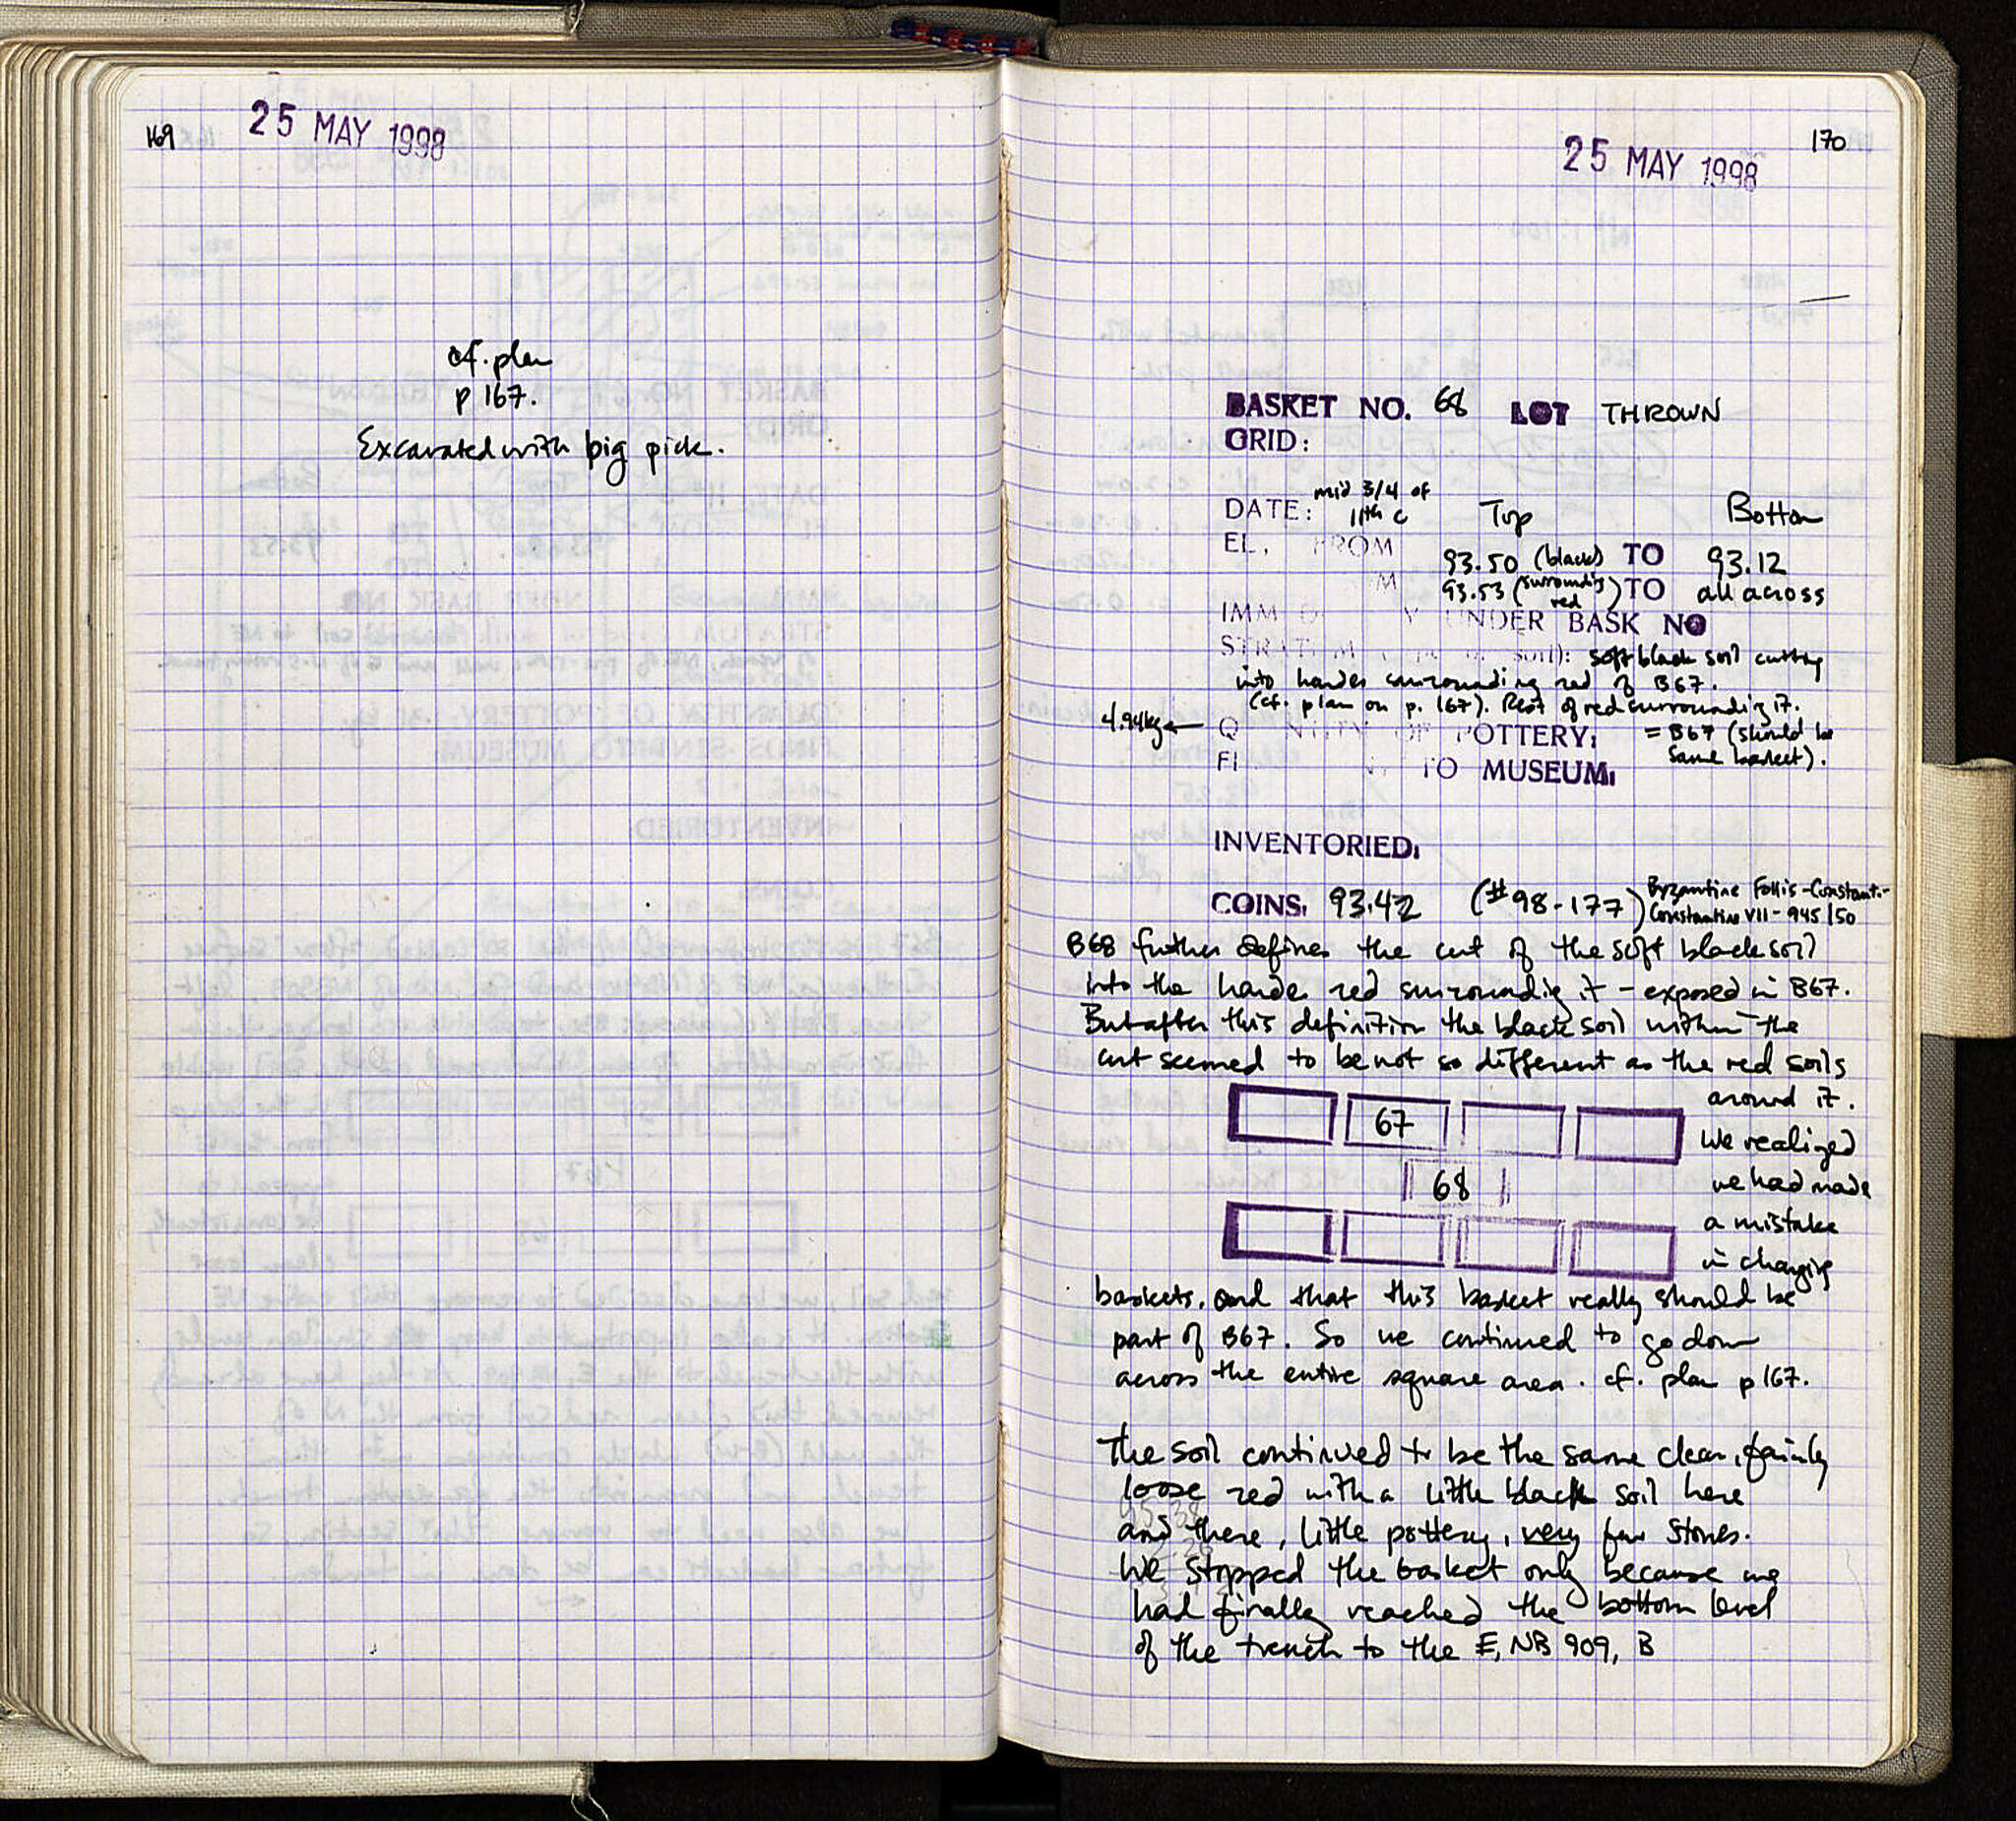 169
25 MAY 1998
cf. plan
p 167.
Excavated with big pick.
170
25 MAY 1998
BASKET NO. 68 LOT THROWN
GRID:
DATE: mid 3/4 of
11th c Top Bottom
EL. FROM 93.50 (black) TO 93.12
M 93.53 (surrounding red) TO all across
IMM Y UNDER BASK NO
STRATUM soil): soft black soil cutting
into harder surrounding red of B67.
(cf. plan on p. 167). Rest of red surrounding it.
4.94kg ← Q NTITY OF POTTERY: = B67 (should be
same basket).
FI TO MUSEUM:
INVENTORIED:
COINS: 93.42 (#98-177) Byzantine Follis - Constant.-
Constantine VII - 945/50
B68 further defines the cut of the soft black soil
into the harder red surrounding it - exposed in B67.
But after this definition the black soil within the
cut seemed to be not so different as the red soils
around it.
67
We realized
68
we had made
a mistake
in changing
baskets, and that this basket really should be
part of B67. So we continued to go down
across the entire square area. cf. plan p 167.
The soil continued to be the same clean, fairly
loose red with a little black soil here
and there, little pottery, very few stones.
We stopped the basket only because we
had finally reached the bottom level
of the trench to the E, NB 909, B